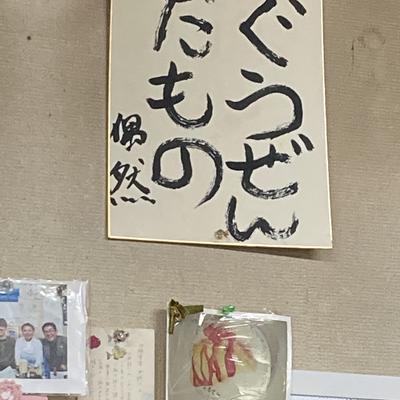 ぐうぜん
だもの
偶然